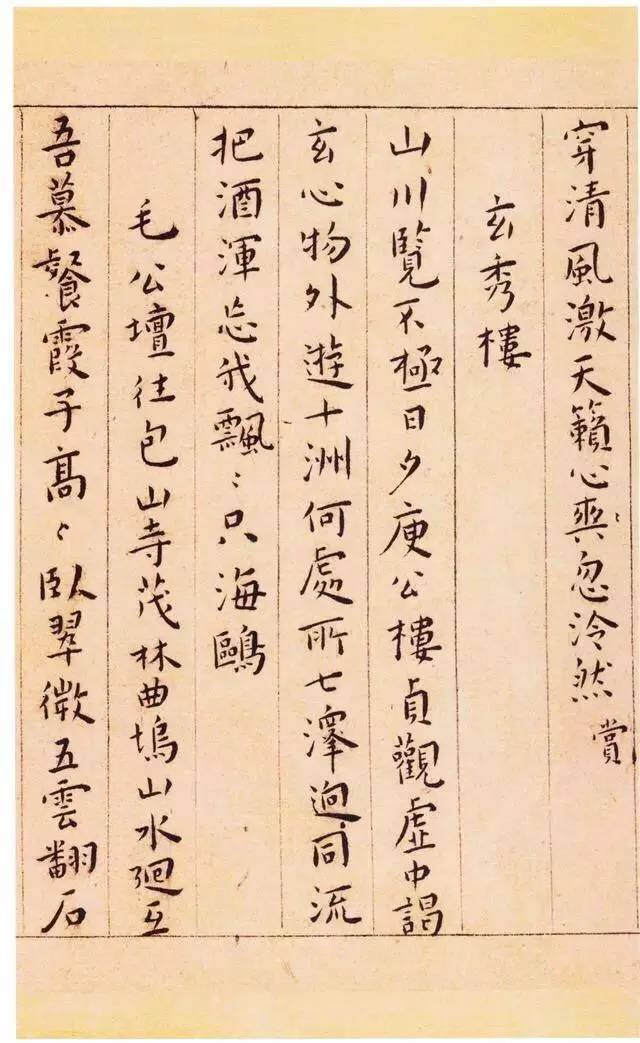 穿清風激天籟心爽忽泠然 賞
玄秀樓
山川覽不極日夕庾公樓貞觀虛中謁
玄心物外遊十洲何處所七澤迥同流
把酒渾忘我飄〻只海鷗
毛公壇往包山寺茂林曲塢山水廻互
吾慕餐霞子高〻臥翠微五雲翻石